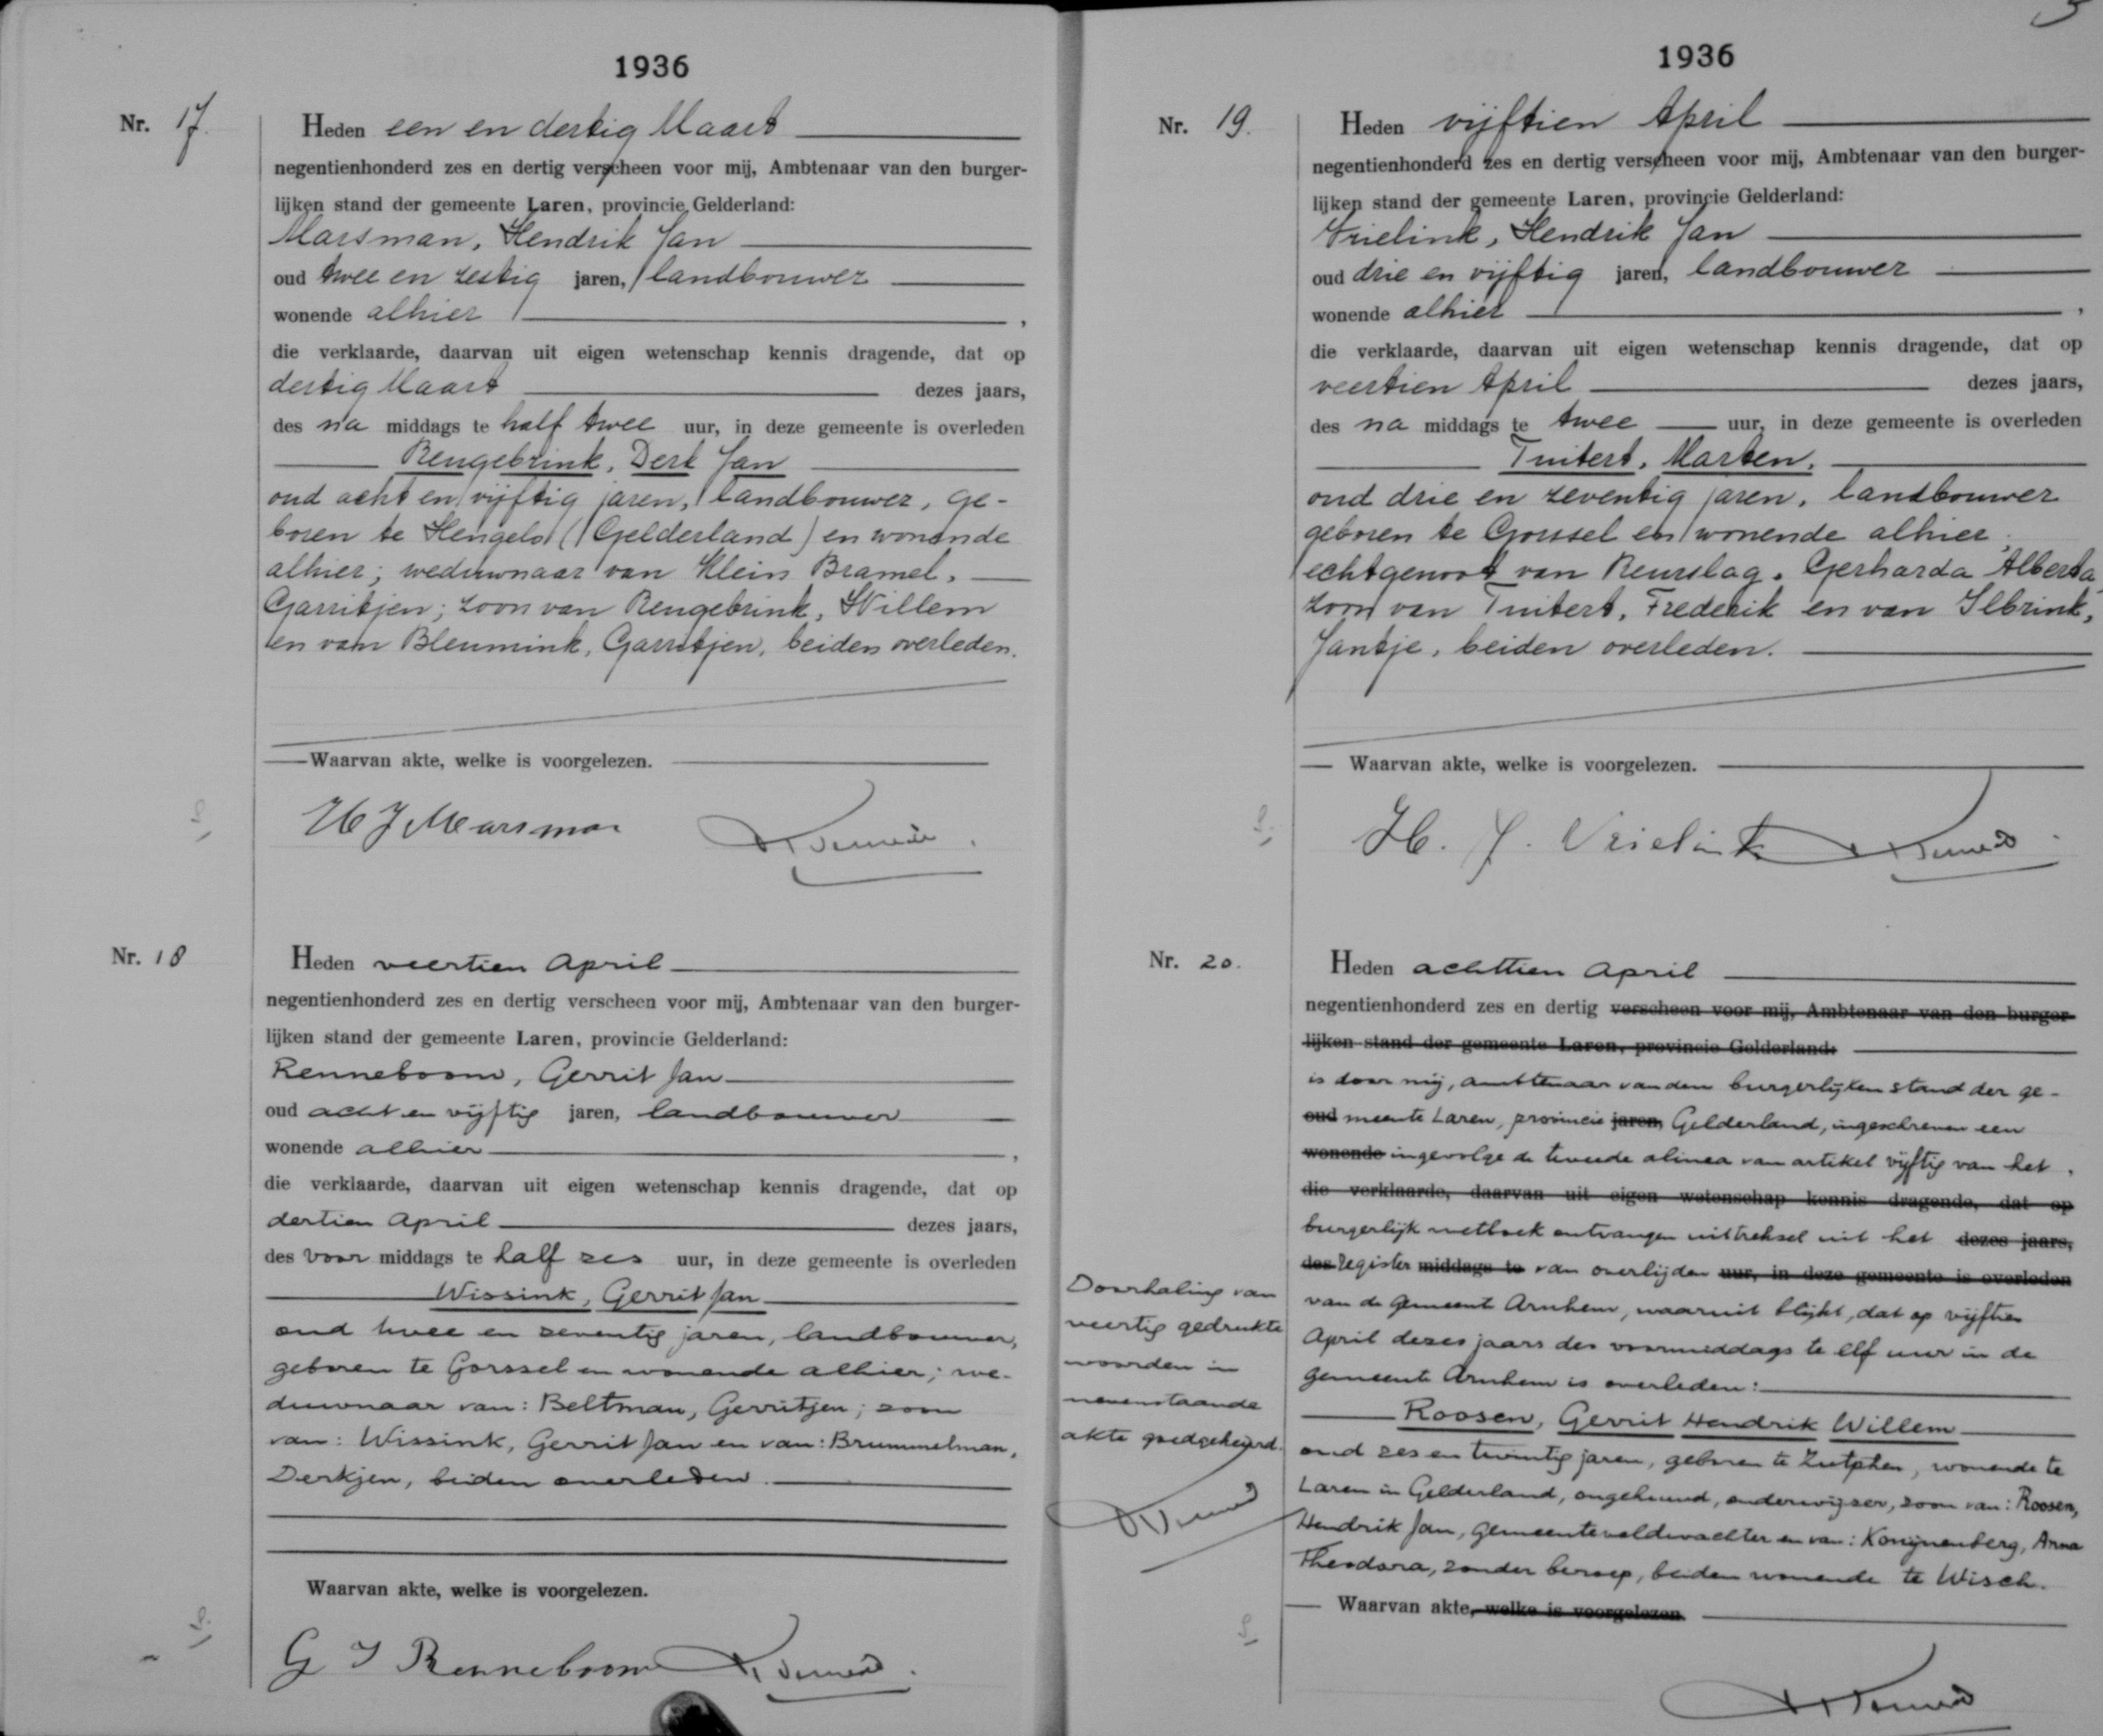 1936
Nr. 17.
Heden een en dertig Maart
negentienhonderd zes en dertig verscheen voor mij, Ambtenaar van den burger-
lijken stand der gemeente Laren, provincie Gelderland:
Marsman, Hendrik Jan
oud twee en zestig jaren, landbouwer
wonende alhier ,
die verklaarde, daarvan uit eigen wetenschap kennis dragende, dat op
dertig Maart dezes jaars,
des na middags te half twee uur, in deze gemeente is overleden
Rengebrink, Derk Jan
oud acht en vijftig jaren, landbouwer, ge-
boren te Hengelo (Gelderland) en wonende
alhier; weduwnaar van Klein Bramel,
Garritjen; zoon van Rengebrink, Willem
en van Bleumink, Garritjen, beiden overleden.
Waarvan akte, welke is voorgelezen.
H J Marsman
Nr. 18
Heden veertien April
negentienhonderd zes en dertig verscheen voor mij, Ambtenaar van den burger-
lijken stand der gemeente Laren, provincie Gelderland:
Renneboom, Gerrit Jan
oud acht en vijftig jaren, landbouwer
wonende alhier ,
die verklaarde, daarvan uit eigen wetenschap kennis dragende, dat op
dertien April dezes jaars,
des voor middags te half zes uur, in deze gemeente is overleden
Wissink, Gerrit Jan
oud twee en zeventig jaren, landbouwer,
geboren te Gorssel en wonende alhier; we-
duwnaar van: Beltman, Gerritjen; zoon
van: Wissink, Gerrit Jan en van: Brummelman,
Derkjen, beiden overleden.
Waarvan akte, welke is voorgelezen.
G J Renneboom
1936
Nr. 19.
Heden vijftien April
negentienhonderd zes en dertig verscheen voor mij, Ambtenaar van den burger-
lijken stand der gemeente Laren, provincie Gelderland:
Vrielink, Hendrik Jan
oud drie en vijftig jaren, landbouwer
wonende alhier ,
die verklaarde, daarvan uit eigen wetenschap kennis dragende, dat op
veertien April dezes jaars,
des na middags te twee uur, in deze gemeente is overleden
Tuitert, Marten.
oud drie en zeventig jaren, landbouwer
geboren te Gorssel en wonende alhier;
echtgenoot van Reurslag, Gerharda Alberta,
zoon van Tuitert, Frederik en van Ilbrink,
Jantje, beiden overleden.
Waarvan akte, welke is voorgelezen.
H. J. Vrielink
Nr. 20.
Heden achttien April
negentienhonderd zes en dertig verscheen voor mij, Ambtenaar van den burger-
lijken stand der gemeente Laren, provincie Gelderland:
is door mij, ambtenaar van den burgerlijken stand der ge-
oud meente Laren, provincie jaren, Gelderland, ingeschreven een
wonende ingevolge de tweede alinea van artikel vijftig van het
die verklaarde, daarvan uit eigen wetenschap kennis dragende, dat op
burgerlijk wetboek ontvangen uittreksel uit het dezes jaars,
des register middags te van overlijden uur, in deze gemeente is overleden
van de Gemeente Arnhem, waaruit blijkt, dat op vijftien
April dezes jaars des voormiddags te elf uur in de
gemeente Arnhem is overleden:
Roosen, Gerrit Hendrik Willem
oud zes en twintig jaren, geboren te Zutphen, wonende te
Laren in Gelderland, ongehuwd, onderwijzer, zoon van: Roosen,
Hendrik Jan, gemeenteveldwachter en van: Konijnenberg, Anna
Theodora, zonder beroep, beiden wonende te Wisch.
Waarvan akte, welke is voorgelezen.
Doorhaling van
veertig gedrukte
woorden in
nevenstaande
akte goedgekeurd.